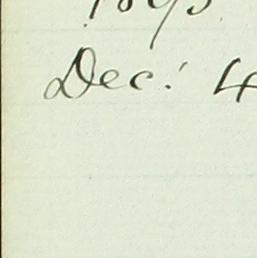 Dec: 4